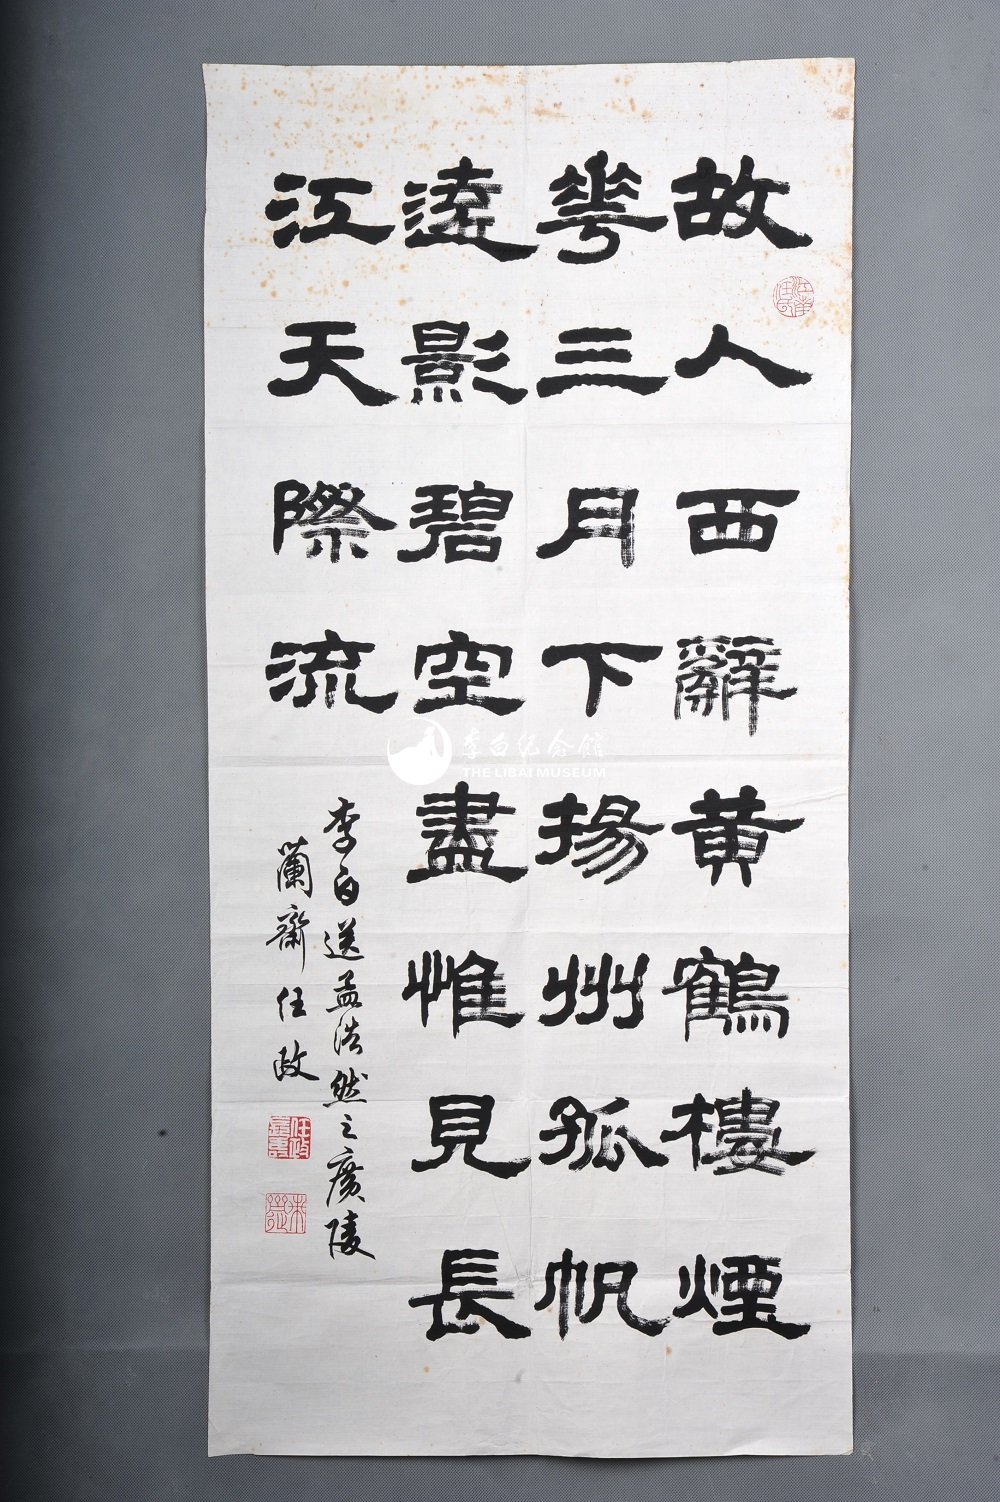 故人西辭黄鶴樓煙
華三月下揚州孤帆
遠影碧空盡惟見長
江天際流
李白送孟浩然之廣陵
蘭齋任政
任政
李白纪念館
THE LIBAI MUSEUM